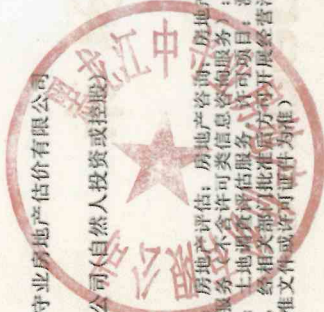 守业房地产估价有限公司
公司(自然人投资或控股)
房地产评估；房地产咨询；房地产
服务（不含许可类信息咨询服务）；
土地调查评估服务。许可项目：
经相关部门批准后方可开展经营活
准文件或许可证件为准）
黑龙江中
有限公司